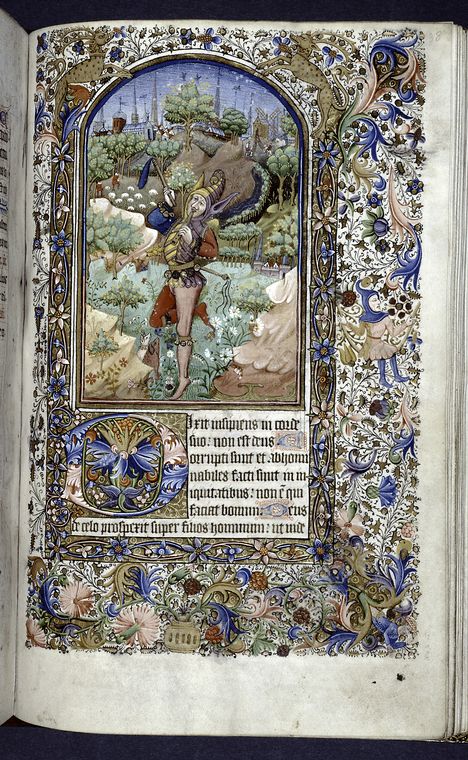 Dixit insipiens in corde
suo: non est deus
Corrupti sunt et abhomi
nabiles facti sunt in in
iquitatibus: non ē qui
faciat bonum Deus
de celo prospexit super filios hominum: ut vide